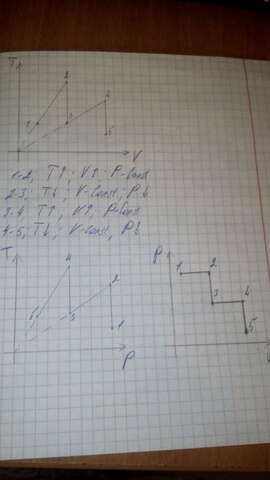 T
2
4
1
3
5
V
1-2; T↑; V↑; P-const
2-3; T↓; V-const; P↓
3-4; T↑, V↑; P-const
4-5; T↓; V-const, P↓
T
4
2
5
3
1
P
P
1
2
3
4
5